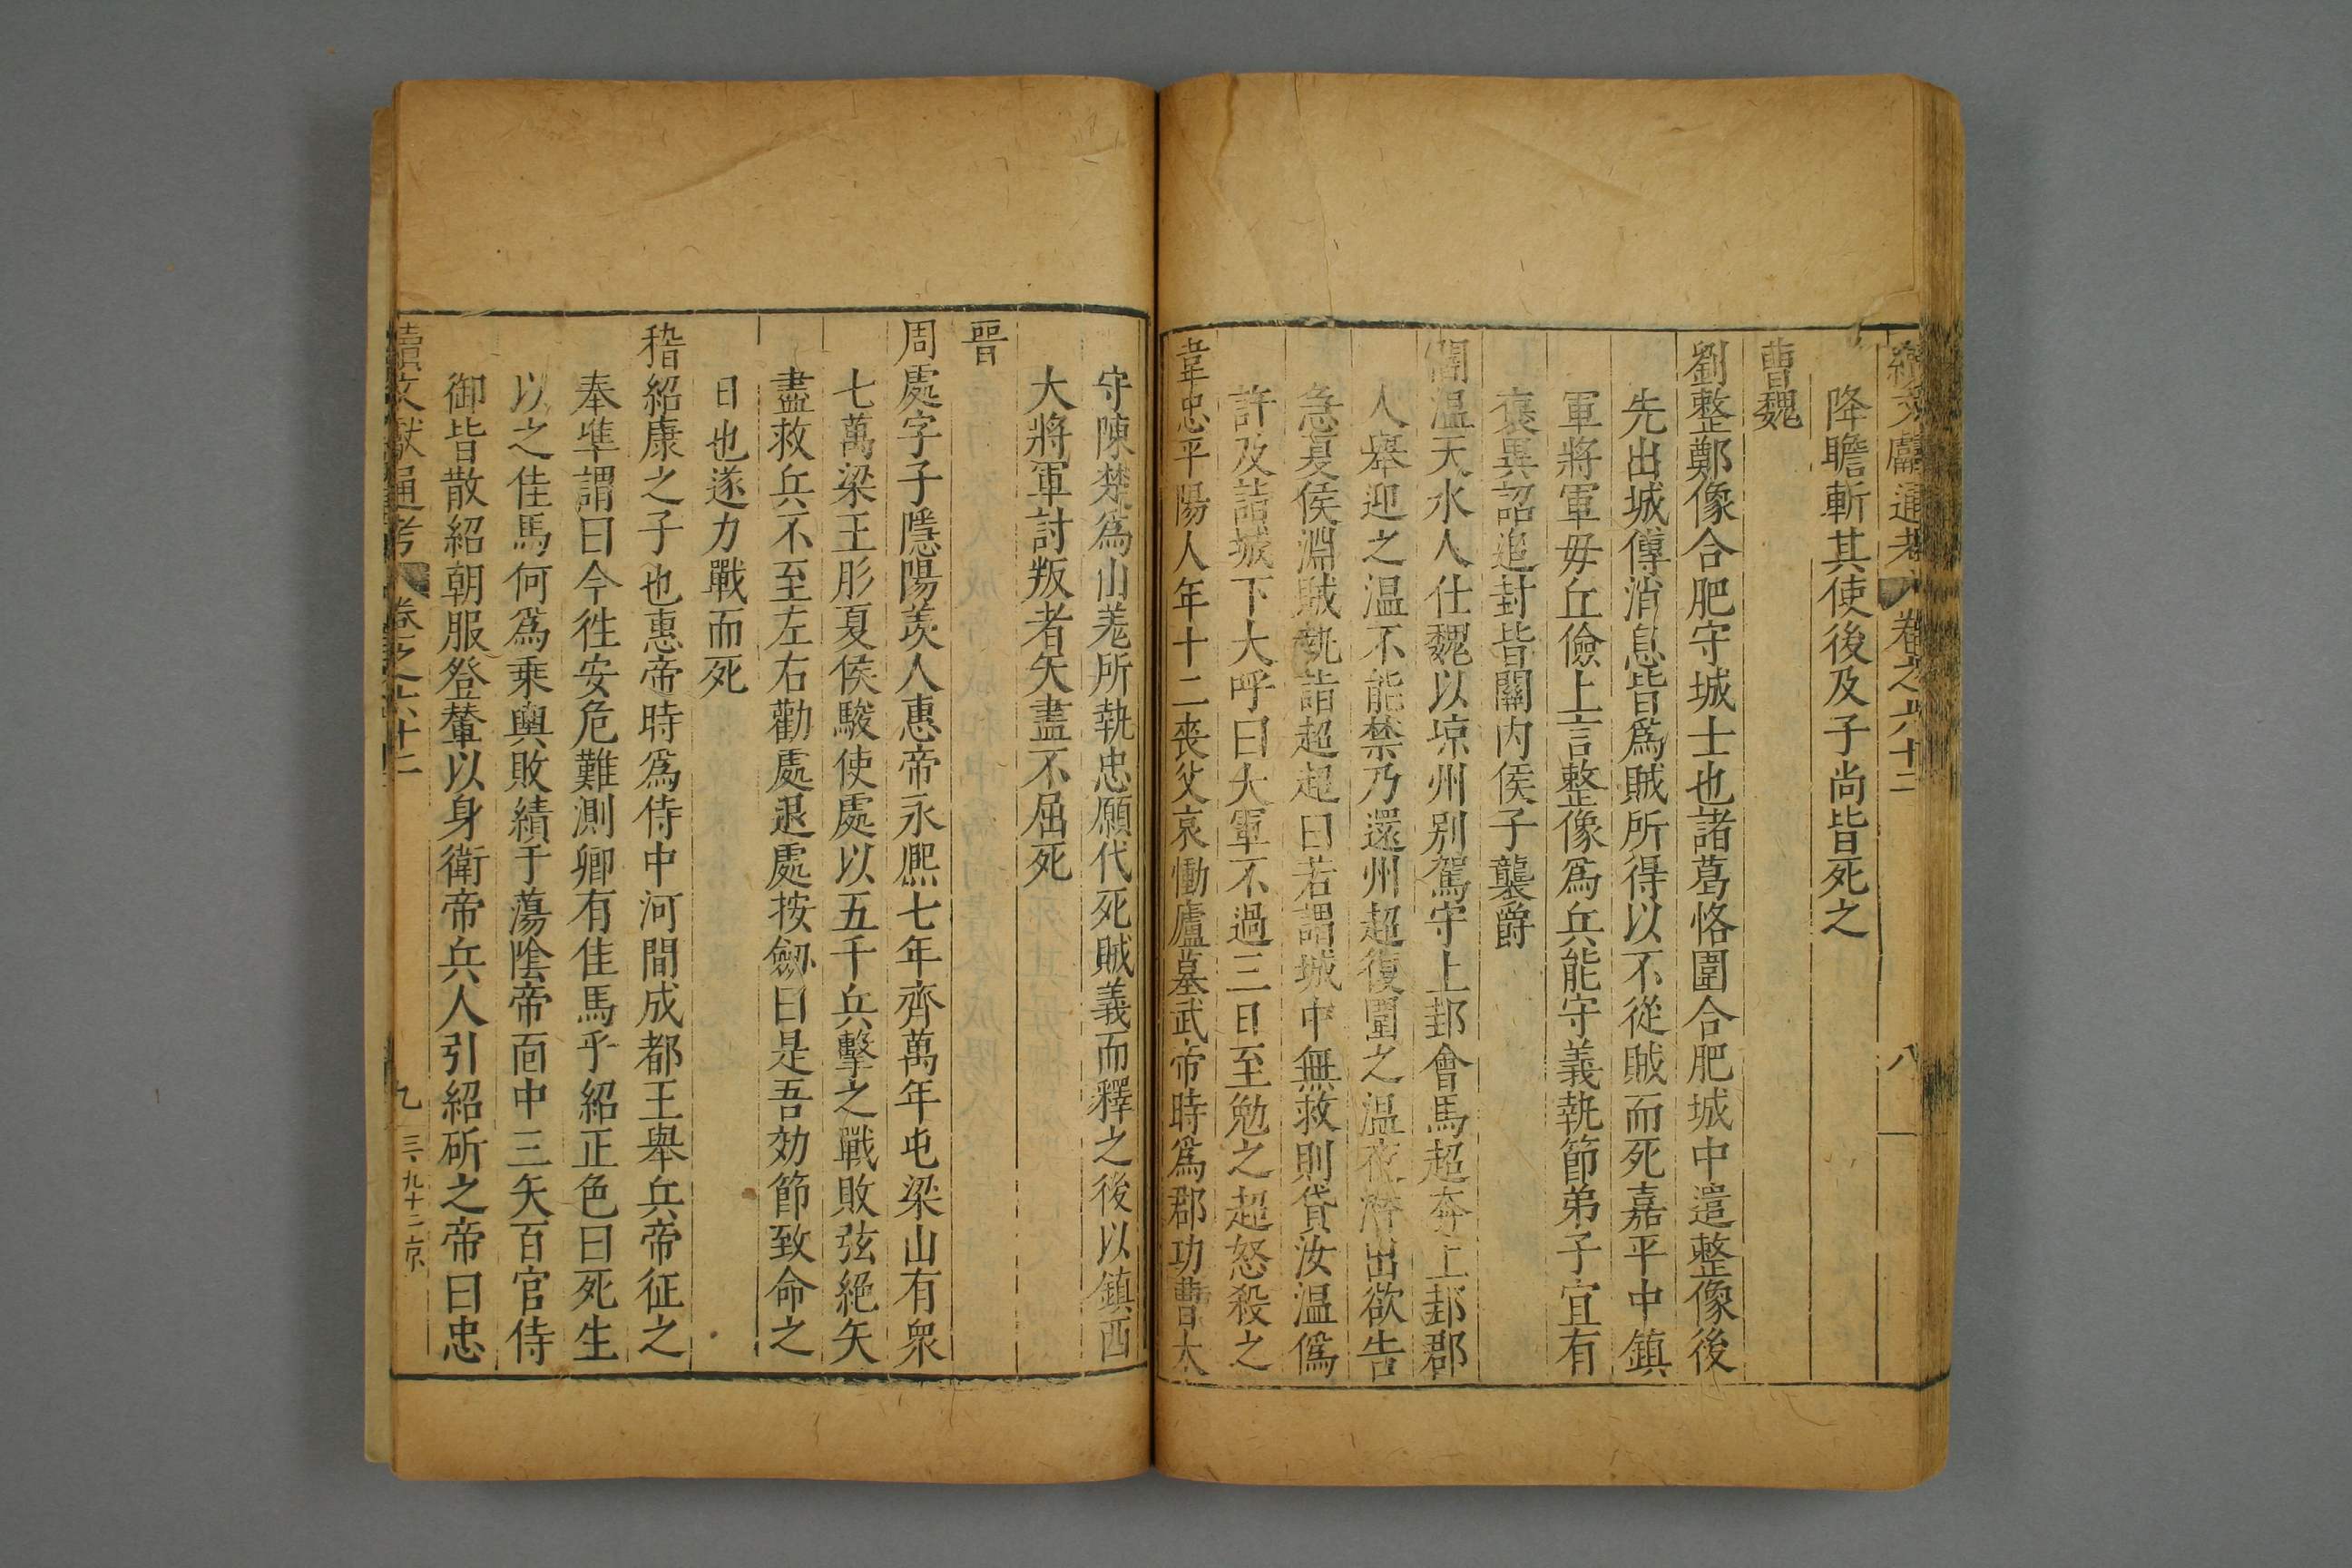 續文獻通考 卷之六十二 八
降瞻斬其使後及子尚皆死之
曹魏
劉整鄭像合肥守城士也諸葛恪圍合肥城中遣整像後
先出城傳消息皆爲賊所得以不從賊而死嘉平中鎮
軍將軍毋丘儉上言整像爲兵能守義執節弟子宜有
襃異詔追封皆關內侯子襲爵
閻温天水人仕魏以凉州別駕守上邽會馬超奔上邽郡
人舉迎之温不能禁乃還州超復圍之温夜潛出欲告
急夏侯淵賊執詣超超曰若謂城中無救則貸汝温僞
許及詣城下大呼曰大軍不過三日至勉之超怒殺之
韋忠平陽人年十二喪父哀慟廬墓武帝時爲郡功曹太
守陳楚爲山羌所執忠願代死賊義而釋之後以鎮西
大將軍討叛者矢盡不屈死
晉
周處字子隱陽羨人惠帝永熈七年齊萬年屯梁山有衆
七萬梁王肜夏侯駿使處以五千兵擊之戰敗弦絕矢
盡救兵不至左右勸處退處按劒曰是吾効節致命之
日也遂力戰而死
嵇紹康之子也惠帝時爲侍中河間成都王舉兵帝征之
奉凖謂曰今徃安危難測卿有佳馬乎紹正色曰死生
以之佳馬何爲乗輿敗績于蕩陰帝面中三矢百官侍
御皆散紹朝服登輦以身衛帝兵人引紹斫之帝曰忠
續文獻通考 卷之六十二 九 三九十二京